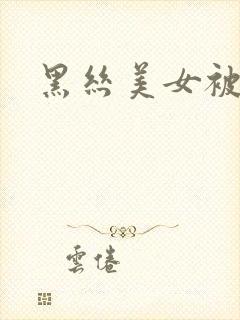 黑丝美女被
雲倦